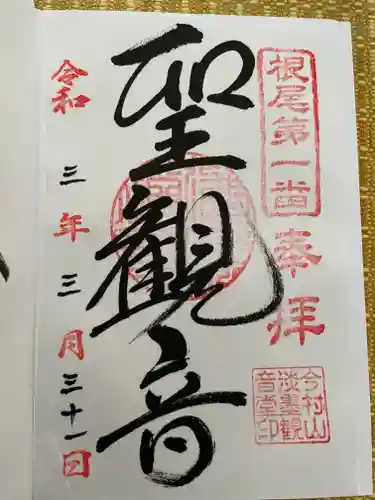 根尾第一番
奉拝
聖観音
令和三年三月三十一日
今村山
淡墨観
音堂印